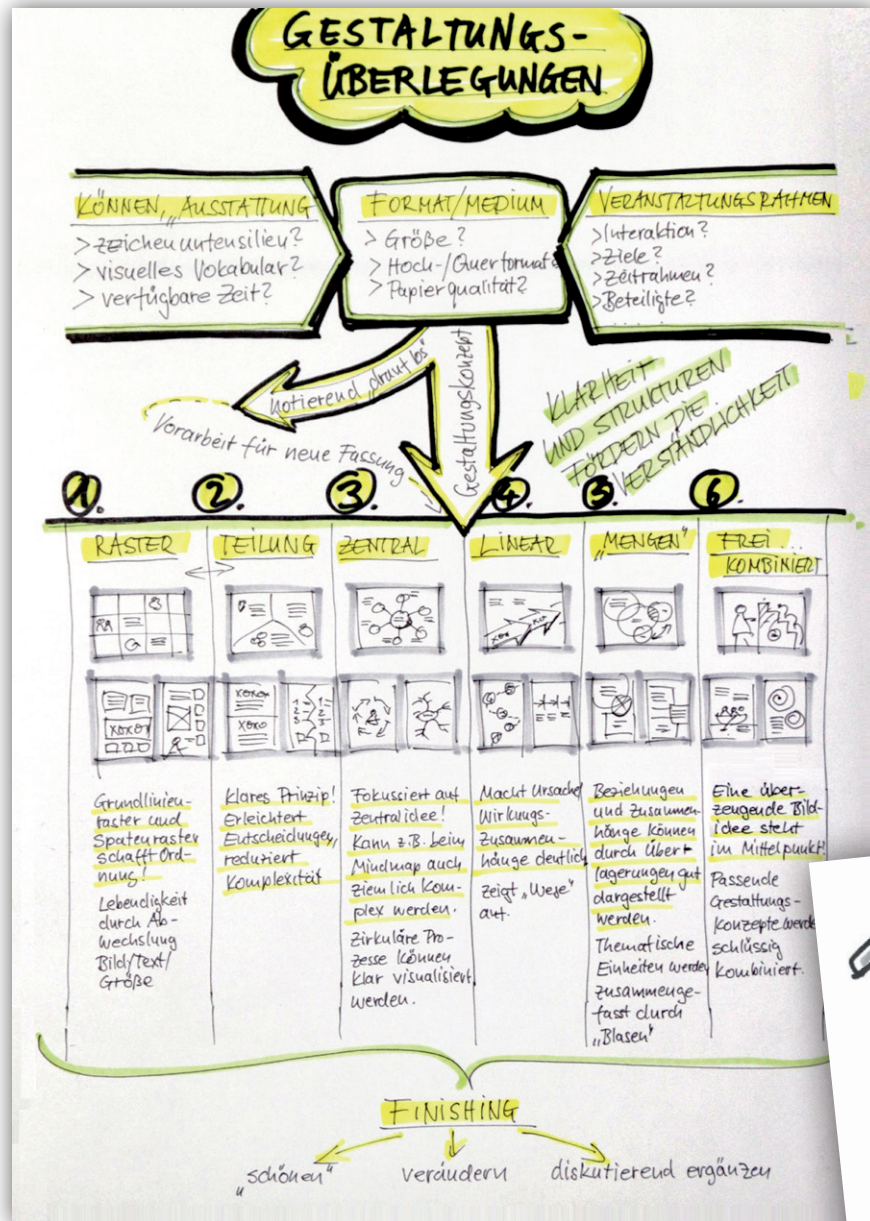 GESTALTUNGS-
ÜBERLEGUNGEN
KÖNNEN, AUSSTATTUNG
> zeichenuntensilien?
> visuelles Vokabular?
> verfügbare Zeit?
FORMAT/MEDIUM
> Größe?
> Hoch-/Querformat?
> Papierqualität?
VERANSTALTUNGSRAHMEN
> Interaktion?
> Ziele?
> Zeitrahmen?
> Beteiligte?
notierend „drauf los“
Vorarbeit für neue Fassung
Gestaltungskonzept
KLARHEIT
UND STRUKTUREN
FÖRDERN DIE
VERSTÄNDLICHKEIT
1.
RASTER
Grundlinien-
raster und
Spatenraster
schafft Ord-
nung!
Lebendigkeit
durch Ab-
wechslung
Bild/Text/
Größe
2.
TEILUNG
XOXOX
XOXO
1-
2-
3-
1-
2-
3-
Klares Prinzip!
Erleichtert
Entscheidungen,
reduziert
Komplexität
3.
ZENTRAL
Fokussiert auf
Zentralidee!
Kann z.B. beim
Mindmap auch
ziemlich kom-
plex werden.
Zirkuläre Pro-
zesse können
klar visualisiert
werden.
4.
LINEAR
Macht Ursache/
Wirkungs-
Zusammen-
hänge deutlich
zeigt „Wege“
auf.
5.
„MENGEN“
Beziehungen
und Zusammen-
hänge können
durch Über-
lagerungen gut
dargestellt
werden.
Thematische
Einheiten werden
zusammenge-
fasst durch
„Blasen“
6.
FREI...
KOMBINIERT
Eine über-
zeugende Bild-
idee steht
im Mittelpunkt!
Passende
Gestaltungs-
konzepte werd
schlüssig
kombiniert.
FINISHING
„schönen“
verändern
diskutierend ergänzen